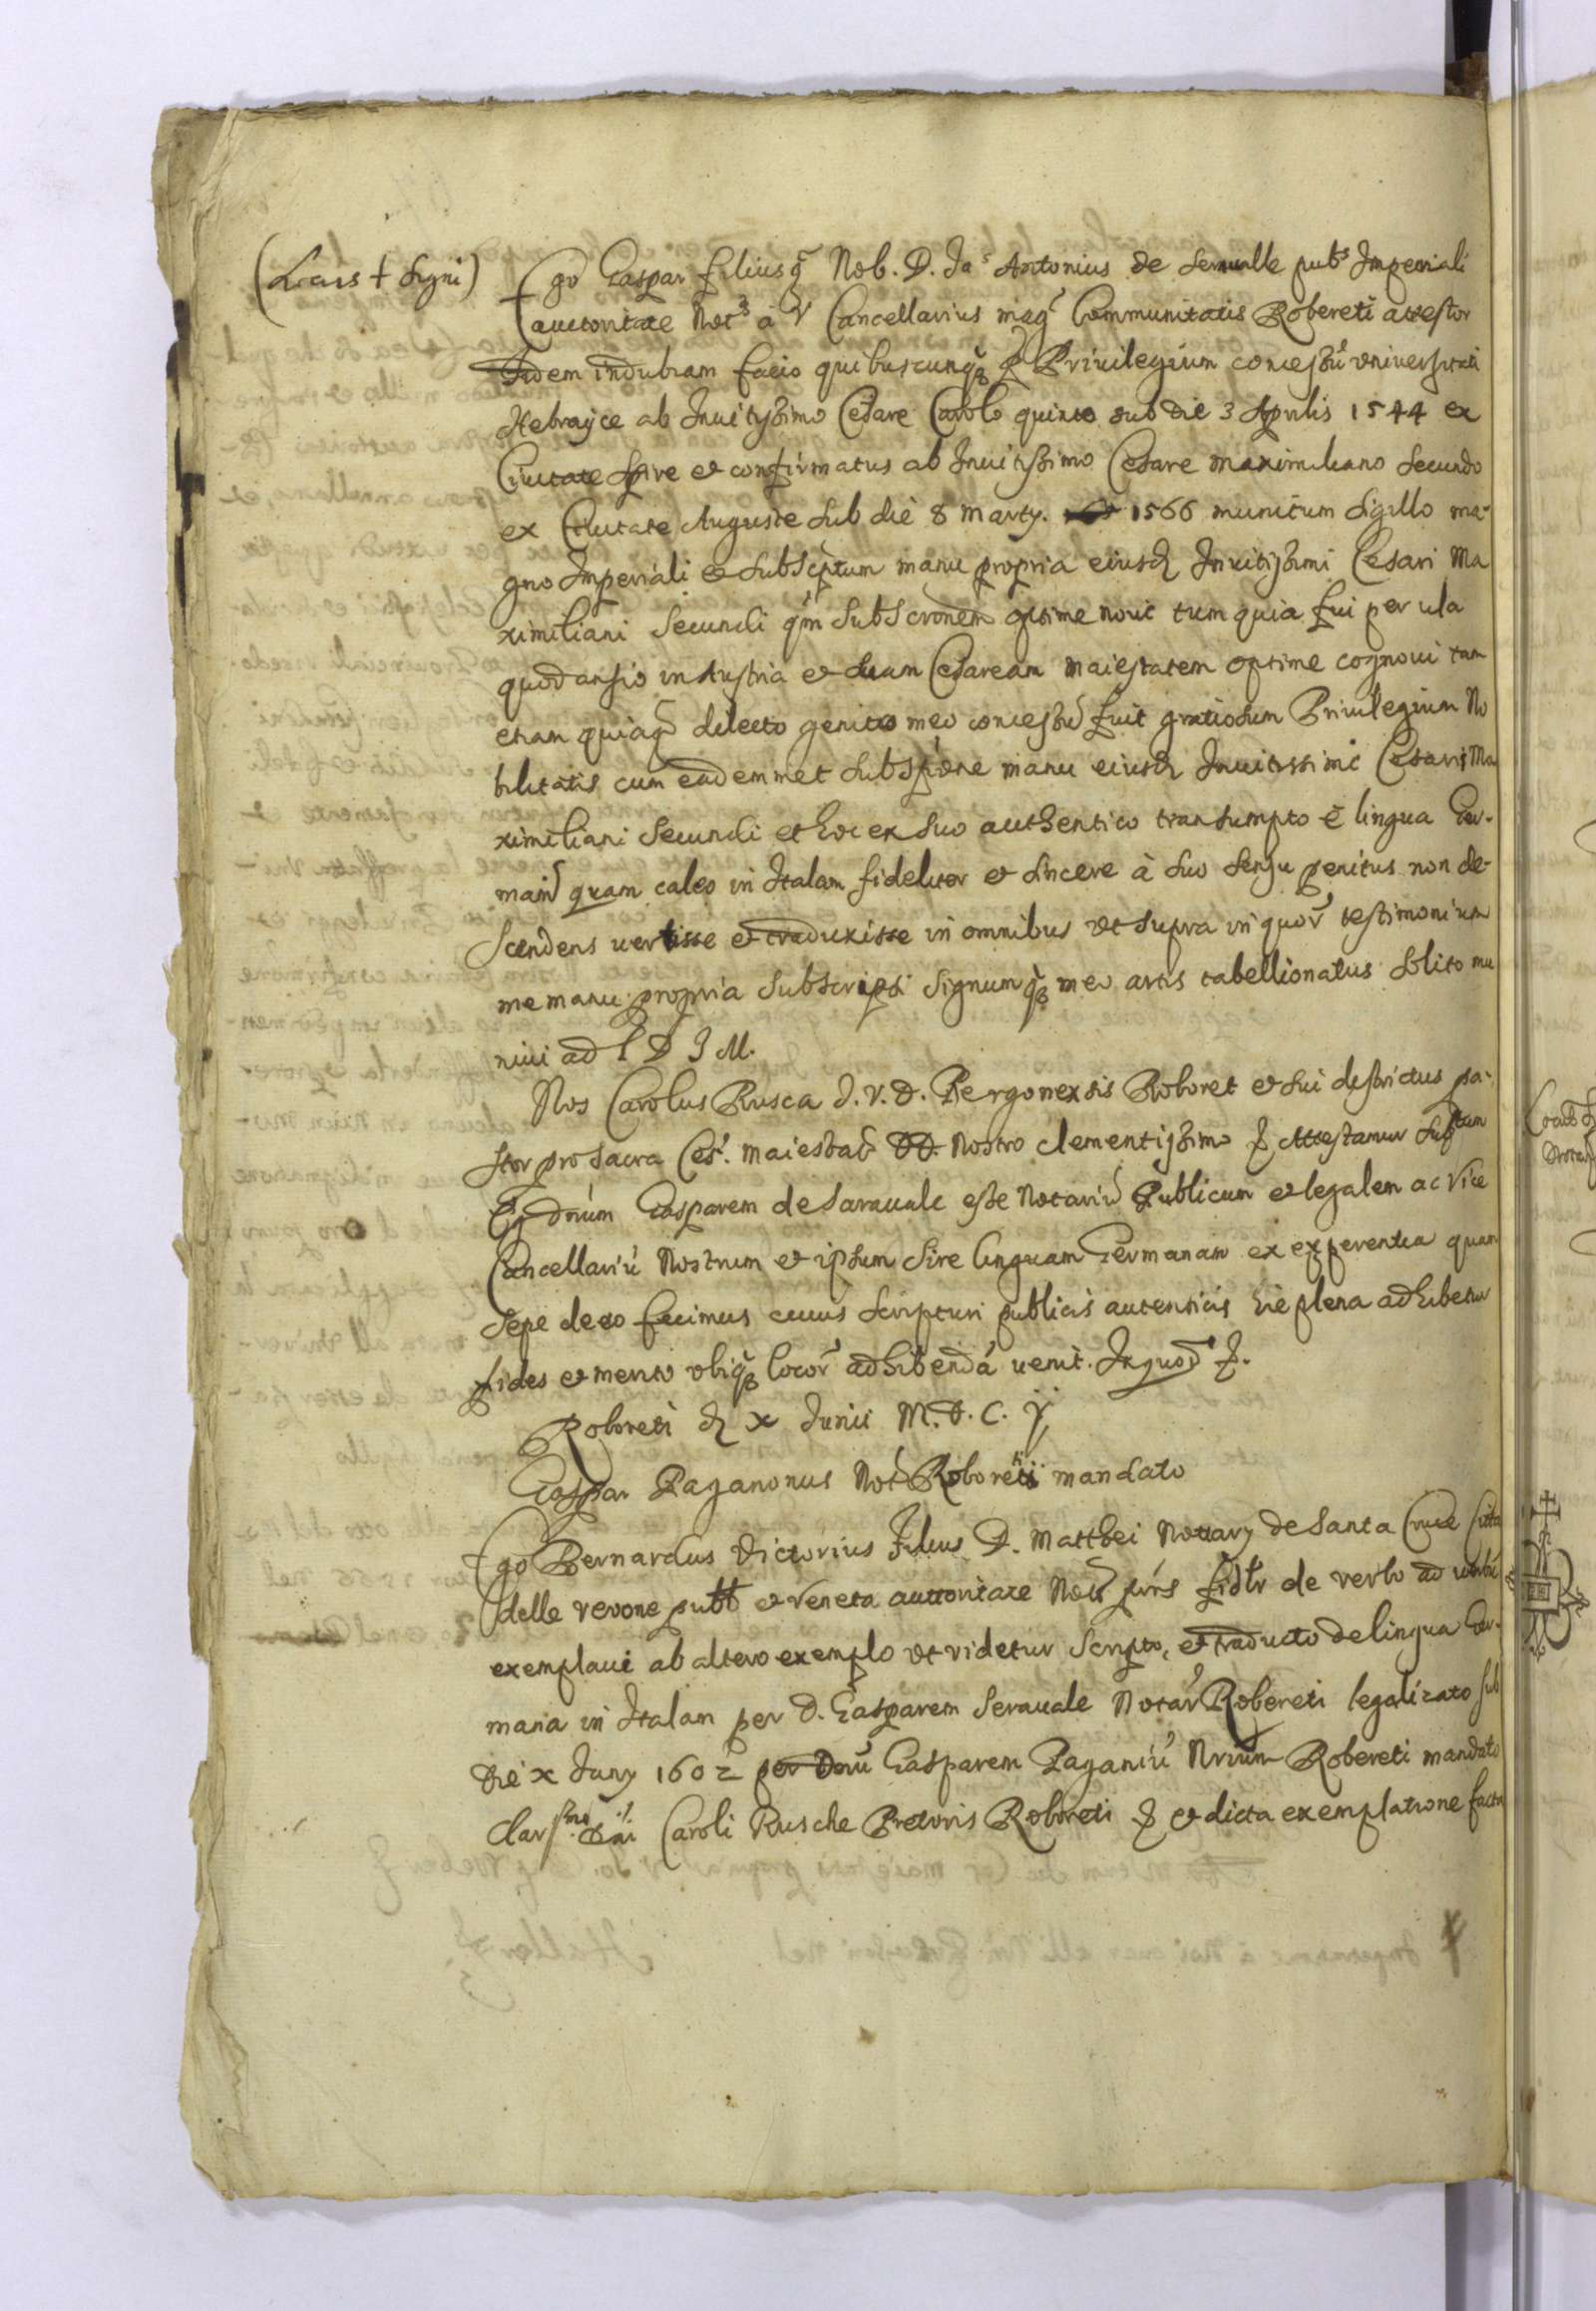 (Locus + Signi)
Ego Gaspar filius q. Nob. D. Jo: Antonius de Seruualle pubs Imperiali
auctoritate Nots à V Cancellarius mag. Communitatis Robereti attestor
fidem indubiam facio quibuscunq. Priuilegium concessu uniuersitati
Hebrayce ab Inuitissimo Cesare Carolo quinto sub die 3 Aprilis 1544 ex
Ciuitate Spire et confirmatus ab Inuitissimo Cesare Maximiliano Secundo
ex Ciuitate Auguste sub die 8 Marty. 1566 munitum Sigillo ma-
gno Imperiali et subscptum manu propria eiusd. Inuitissimi Cesari Ma
ximiliani Secundi qm subscronem optime noui tum quia fui per
in Austria et suam Cesaream maiestatem optime cognoui tum
etiam quia dilecto genitore meo concessu fuit gratiosum Priuilegium No
bilitatis cum eademmet subscpione manu eiusd. Inuitissimi Cesaris Ma
ximiliani Secundi et hoc ex suo authentico transumpto è lingua Ger-
mana quam caleo in Italam fideliter et sincere à suo sensu penitus non de-
scendens uertisse et traduxisse in omnibus ut supra in quor. testimonium
me manu propria subscripsi signumq. meo artis tabellionatus solito mu
niui ad L D J M.
Nos Carolus Rusca J. V. D. Pergonexsis Roboret et sui destrictus pa-
stor pro sacra Ces. Maiestate DD. Nostro clementissimo Attestamur
Eg. dnum Gasparem de Sarauale esse Notariu Publicum et legalem ac Vice
Cancellariu Nostrum et ipsum sire linguam Germanam ex experentia quam
sepe de eo fecimus cuius scripturi publicis autenticis hic plena adhibetur
fides et merito ubiq. locor. adhibenda uenit. In quod
Roboreti d. x Junii M.D.C. ij
Gaspar Paganonus Not. Roboreti mandato
Ego Bernardus Victorius filius D. Matthei Nottary de Santa Cruce Citta
delle verone pubb et Veneta auttoritate Nott. fidlr de verbo ad uerbu
exemplaui ab altero exemplo ut videtur scripto, et traducto de lingua Ger-
mana in Italam per D. Gasparem Serauale Notar. Robereti legalizato sub
die x Juny 1602 per Dnu Gasparem Paganiu Nrium Robereti mandato
Clarsmo Dni Caroli Rusche Pretoris Roboreti et dicta exemplatione facta